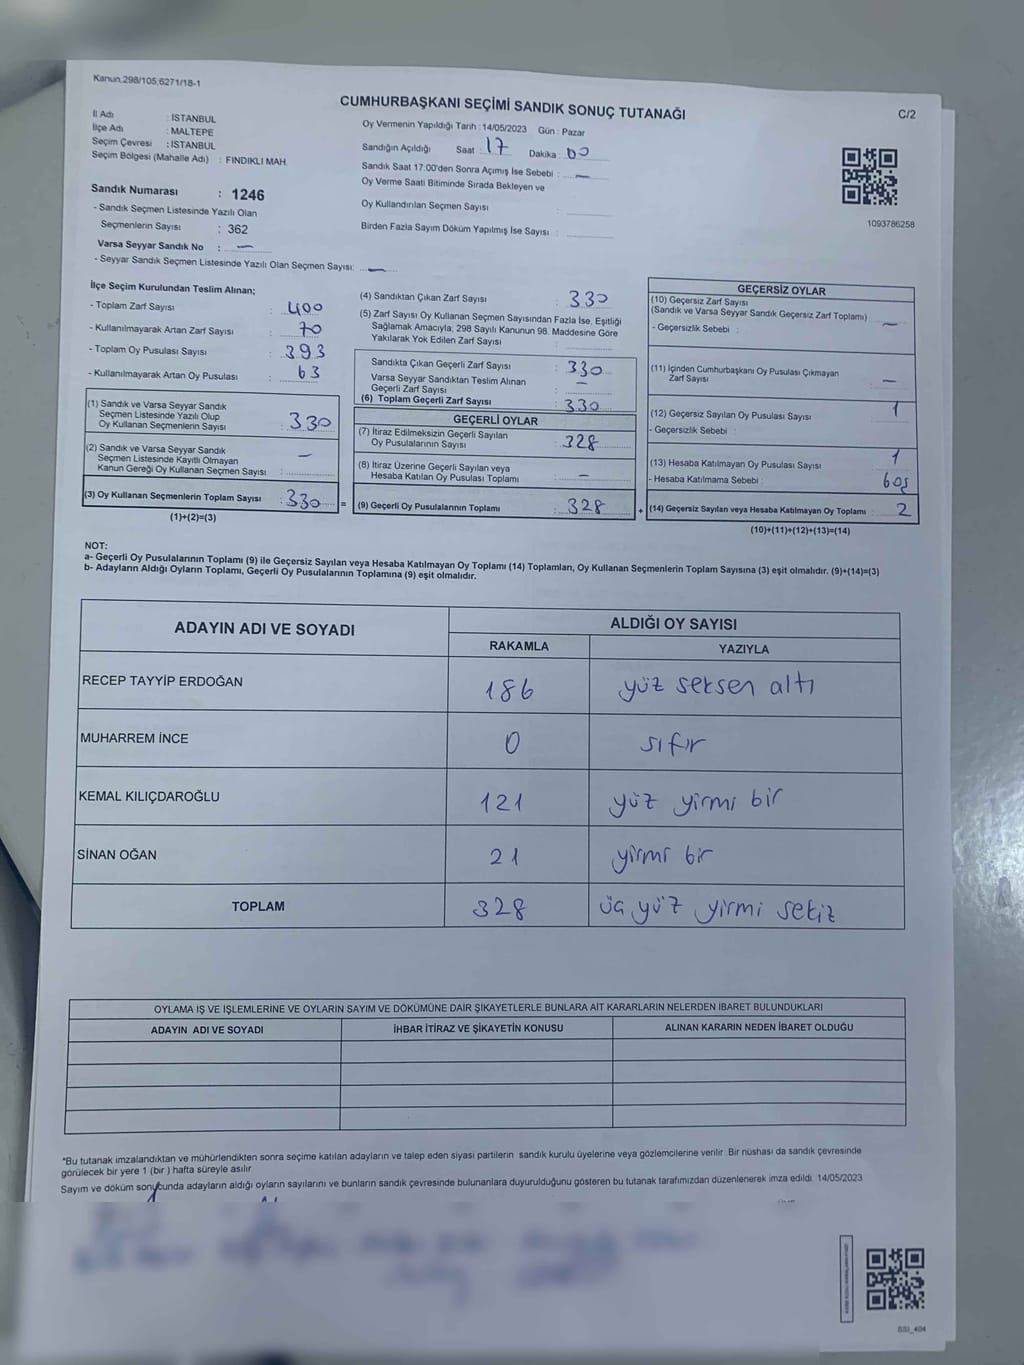 Kanun.298/105,6271/18-1
CUMHURBAŞKANI SEÇİMİ SANDIK SONUÇ TUTANAĞI
C/2
İl Adı : İSTANBUL
İlçe Adı : MALTEPE
Seçim Çevresi : İSTANBUL
Seçim Bölgesi (Mahalle Adı) : FINDIKLI MAH.
Sandık Numarası : 1246
- Sandık Seçmen Listesinde Yazılı Olan
Seçmenlerin Sayısı : 362
Varsa Seyyar Sandık No : —
- Seyyar Sandık Seçmen Listesinde Yazılı Olan Seçmen Sayısı: —
Oy Vermenin Yapıldığı Tarih : 14/05/2023 Gün : Pazar
Sandığın Açıldığı Saat : 17 Dakika : 00
Sandık Saat 17:00'den Sonra Açımış İse Sebebi : —
Oy Verme Saati Bitiminde Sırada Bekleyen ve
Oy Kullandırılan Seçmen Sayısı :
Birden Fazla Sayım Döküm Yapılmış İse Sayısı :
1093786258
İlçe Seçim Kurulundan Teslim Alınan;
- Toplam Zarf Sayısı : 400
- Kullanılmayarak Artan Zarf Sayısı : 70
- Toplam Oy Pusulası Sayısı : 393
- Kullanılmayarak Artan Oy Pusulası : 63
(1) Sandık ve Varsa Seyyar Sandık
Seçmen Listesinde Yazılı Olup
Oy Kullanan Seçmenlerin Sayısı : 330
(2) Sandık ve Varsa Seyyar Sandık
Seçmen Listesinde Kayıtlı Olmayan
Kanun Gereği Oy Kullanan Seçmen Sayısı : —
(3) Oy Kullanan Seçmenlerin Toplam Sayısı : 330 =
(1)+(2)=(3)
(4) Sandıktan Çıkan Zarf Sayısı : 330
(5) Zarf Sayısı Oy Kullanan Seçmen Sayısından Fazla İse, Eşitliği
Sağlamak Amacıyla; 298 Sayılı Kanunun 98. Maddesine Göre
Yakılarak Yok Edilen Zarf Sayısı :
Sandıkta Çıkan Geçerli Zarf Sayısı : 330
Varsa Seyyar Sandıktan Teslim Alınan
Geçerli Zarf Sayısı : —
(6) Toplam Geçerli Zarf Sayısı : 330
GEÇERLİ OYLAR
(7) İtiraz Edilmeksizin Geçerli Sayılan
Oy Pusulalarının Sayısı : 328
(8) İtiraz Üzerine Geçerli Sayılan veya
Hesaba Katılan Oy Pusulası Toplamı : —
(9) Geçerli Oy Pusulalarının Toplamı : 328 +
GEÇERSİZ OYLAR
(10) Geçersiz Zarf Sayısı
(Sandık ve Varsa Seyyar Sandık Geçersiz Zarf Toplamı) : —
- Geçersizlik Sebebi :
(11) İçinden Cumhurbaşkanı Oy Pusulası Çıkmayan
Zarf Sayısı : —
(12) Geçersiz Sayılan Oy Pusulası Sayısı : 1
- Geçersizlik Sebebi :
(13) Hesaba Katılmayan Oy Pusulası Sayısı : 1
- Hesaba Katılmama Sebebi : boş
(14) Geçersiz Sayılan veya Hesaba Katılmayan Oy Toplamı : 2
(10)+(11)+(12)+(13)=(14)
NOT:
a- Geçerli Oy Pusulalarının Toplamı (9) ile Geçersiz Sayılan veya Hesaba Katılmayan Oy Toplamı (14) Toplamları, Oy Kullanan Seçmenlerin Toplam Sayısına (3) eşit olmalıdır. (9)+(14)=(3)
b- Adayların Aldığı Oyların Toplamı, Geçerli Oy Pusulalarının Toplamına (9) eşit olmalıdır.
ADAYIN ADI VE SOYADI ALDIĞI OY SAYISI
RAKAMLA YAZIYLA
RECEP TAYYİP ERDOĞAN 186 yüz seksen altı
MUHARREM İNCE 0 sıfır
KEMAL KILIÇDAROĞLU 121 yüz yirmi bir
SİNAN OĞAN 21 yirmi bir
TOPLAM 328 üç yüz yirmi sekiz
OYLAMA İŞ VE İŞLEMLERİNE VE OYLARIN SAYIM VE DÖKÜMÜNE DAİR ŞİKAYETLERLE BUNLARA AİT KARARLARIN NELERDEN İBARET BULUNDUKLARI
ADAYIN ADI VE SOYADI İHBAR İTİRAZ VE ŞİKAYETİN KONUSU ALINAN KARARIN NEDEN İBARET OLDUĞU
*Bu tutanak imzalandıktan ve mühürlendikten sonra seçime katılan adayların ve talep eden siyasi partilerin sandık kurulu üyelerine veya gözlemcilerine verilir. Bir nüshası da sandık çevresinde
görülecek bir yere 1 (bir ) hafta süreyle asılır.
Sayım ve döküm sonucunda adayların aldığı oyların sayılarını ve bunların sandık çevresinde bulunanlara duyurulduğunu gösteren bu tutanak tarafımızdan düzenlenerek imza edildi. 14/05/2023